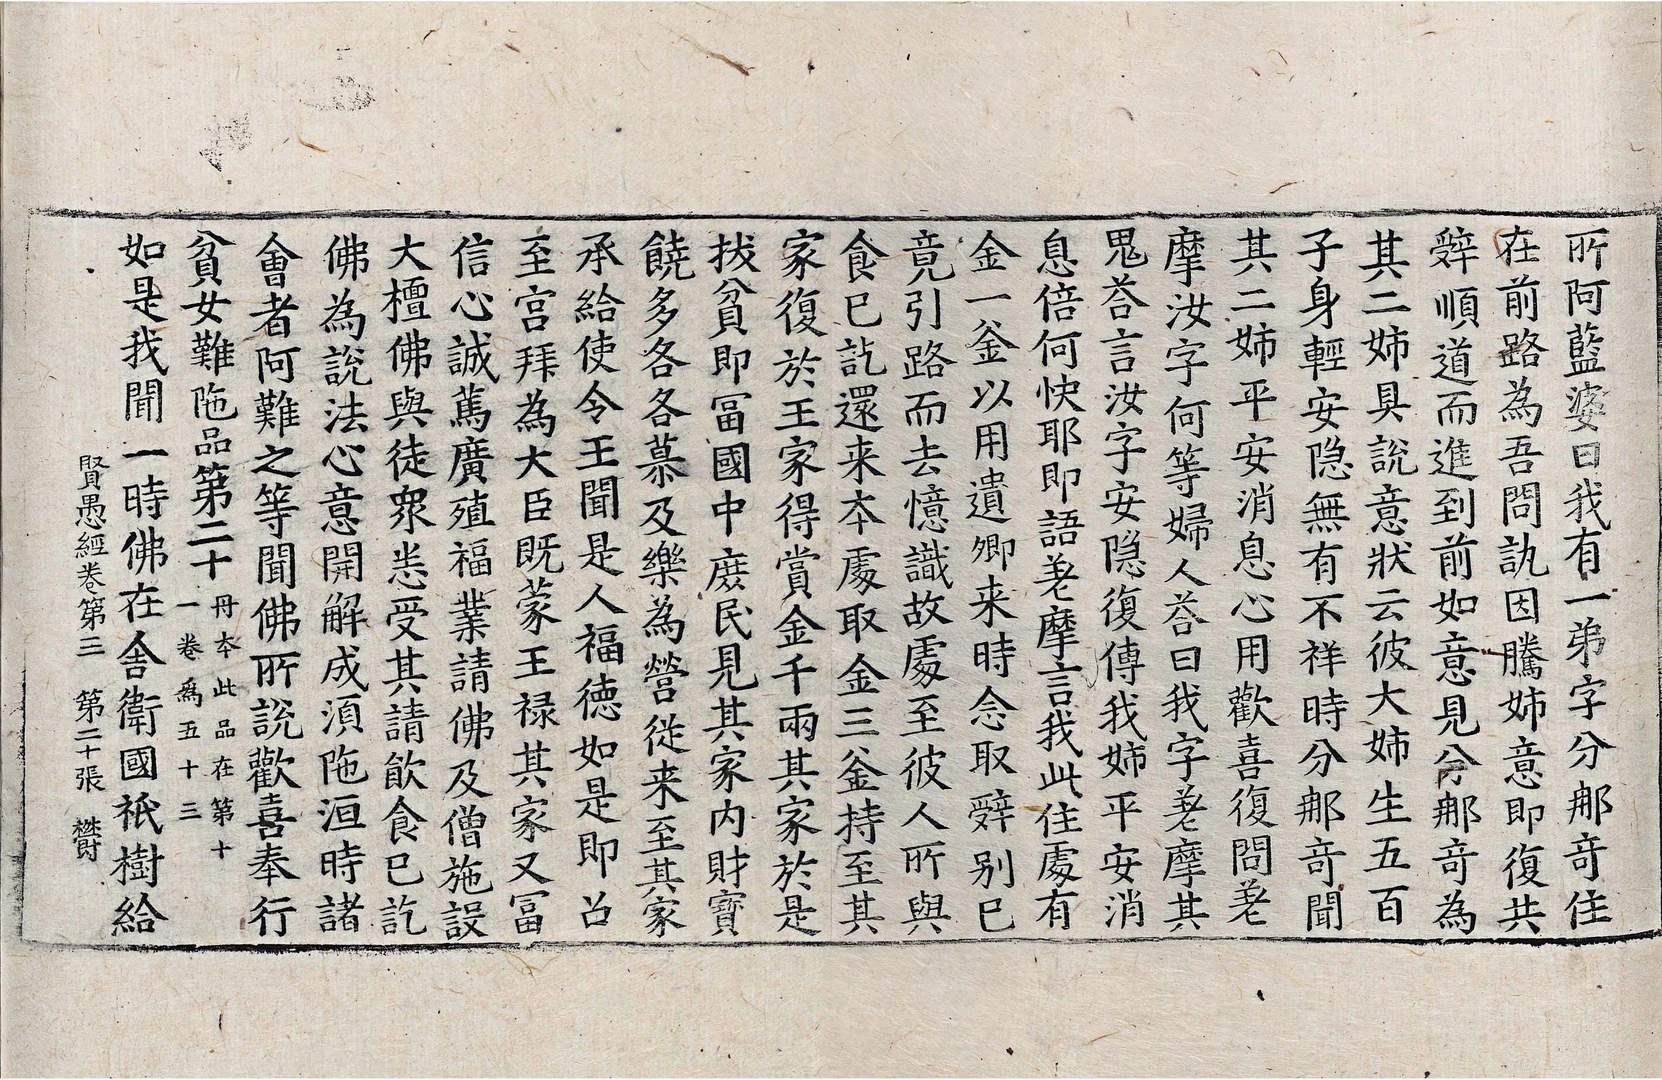 所阿藍婆曰我有一弟字分那奇住
在前路為吾問訊因騰姊意即復共
辤順道而進到前如意見分那奇為
其二姊具說意狀云彼大姊生五百
子身輕安隐無有不祥時分那奇聞
其二姊平安消息心用歡喜復問老
摩汝字何等婦人荅曰我字老摩其
鬼荅言汝字安隐復傳我姊平安消
息倍何快耶即語老摩言我此住處有
金一釜以用遺卿来時念取辤别已
竟引路而去憶識故處至彼人所與
食已訖還来本處取金三釜持至其
家復於王家得賞金千兩其家於是
拔貧即冨國中庶民見其家内財寶
饒多各各慕及樂為營従来至其家
承給使令王聞是人福徳如是即召
至宫拜為大臣既蒙王禄其家又冨
信心誠篤廣殖福業請佛及僧施設
大檀佛與徒衆悉受其請飲食已訖
佛為說法心意開解成湏陁洹時諸
會者阿難之等聞佛所說歡喜奉行
貧女難陁品第二十 丹本此品在第十
一卷為五十三
如是我聞一時佛在舍衛國祇樹給
賢愚經卷第三 第二十張 欝